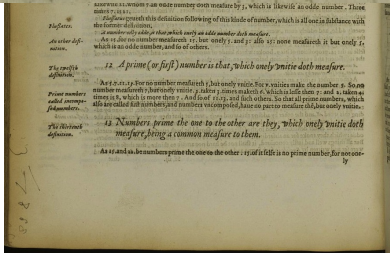 likewise 11. whom 7 an odde number doth measure by 3, which is likewise an odde number. Three
times 7. is 21.
Flussates.
Flussates geueth this definition following of this kinde of number, which is all one in substance with
the former definition.
A number odly odde, is that which onely an odde number doth measure.
An other defi-
nition.
As 15. for no number measureth 15. but onely 5. and 3: also 25: none measureth it but onely 5,
which is an odde number, and so of others.
The twelfth
definition.
12 A prime (or first) number is that, which onely vnitie doth
measure.
Prime numbers
called incompo-
sed numbers.
As 5.7.11.13. For no number measureth 5, but onely vnitie. For 2. vnities make the number 5. So no
number measureth 7, but onely vnitie. 2. taken 3. times maketh 6. which is lesse then 7: and 2. taken 4.
times is 8, which is more then 7. And so of 11.13. and such others. So that all prime numbers, which
also are called first numbers, and numbers vncomposed, haue no part to measure thē, but onely vnitie.
The thirtenth
definition.
13 Numbers prime the one to the other are they, which onely vnitie doth
measure, being a common measure to them.
As 15. and 22. be numbers prime the one to the other: 15. of it selfe is no prime number, for not one-
ly